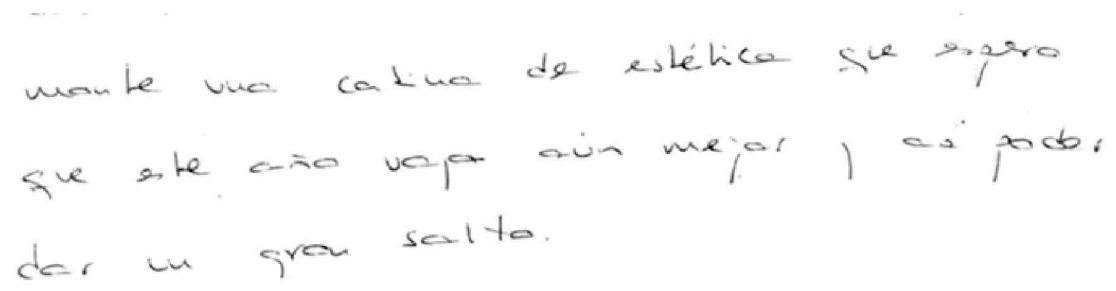 monte una cabina de estética que espero
que este año vaya aún mejor y así poder
dar un gran salto.